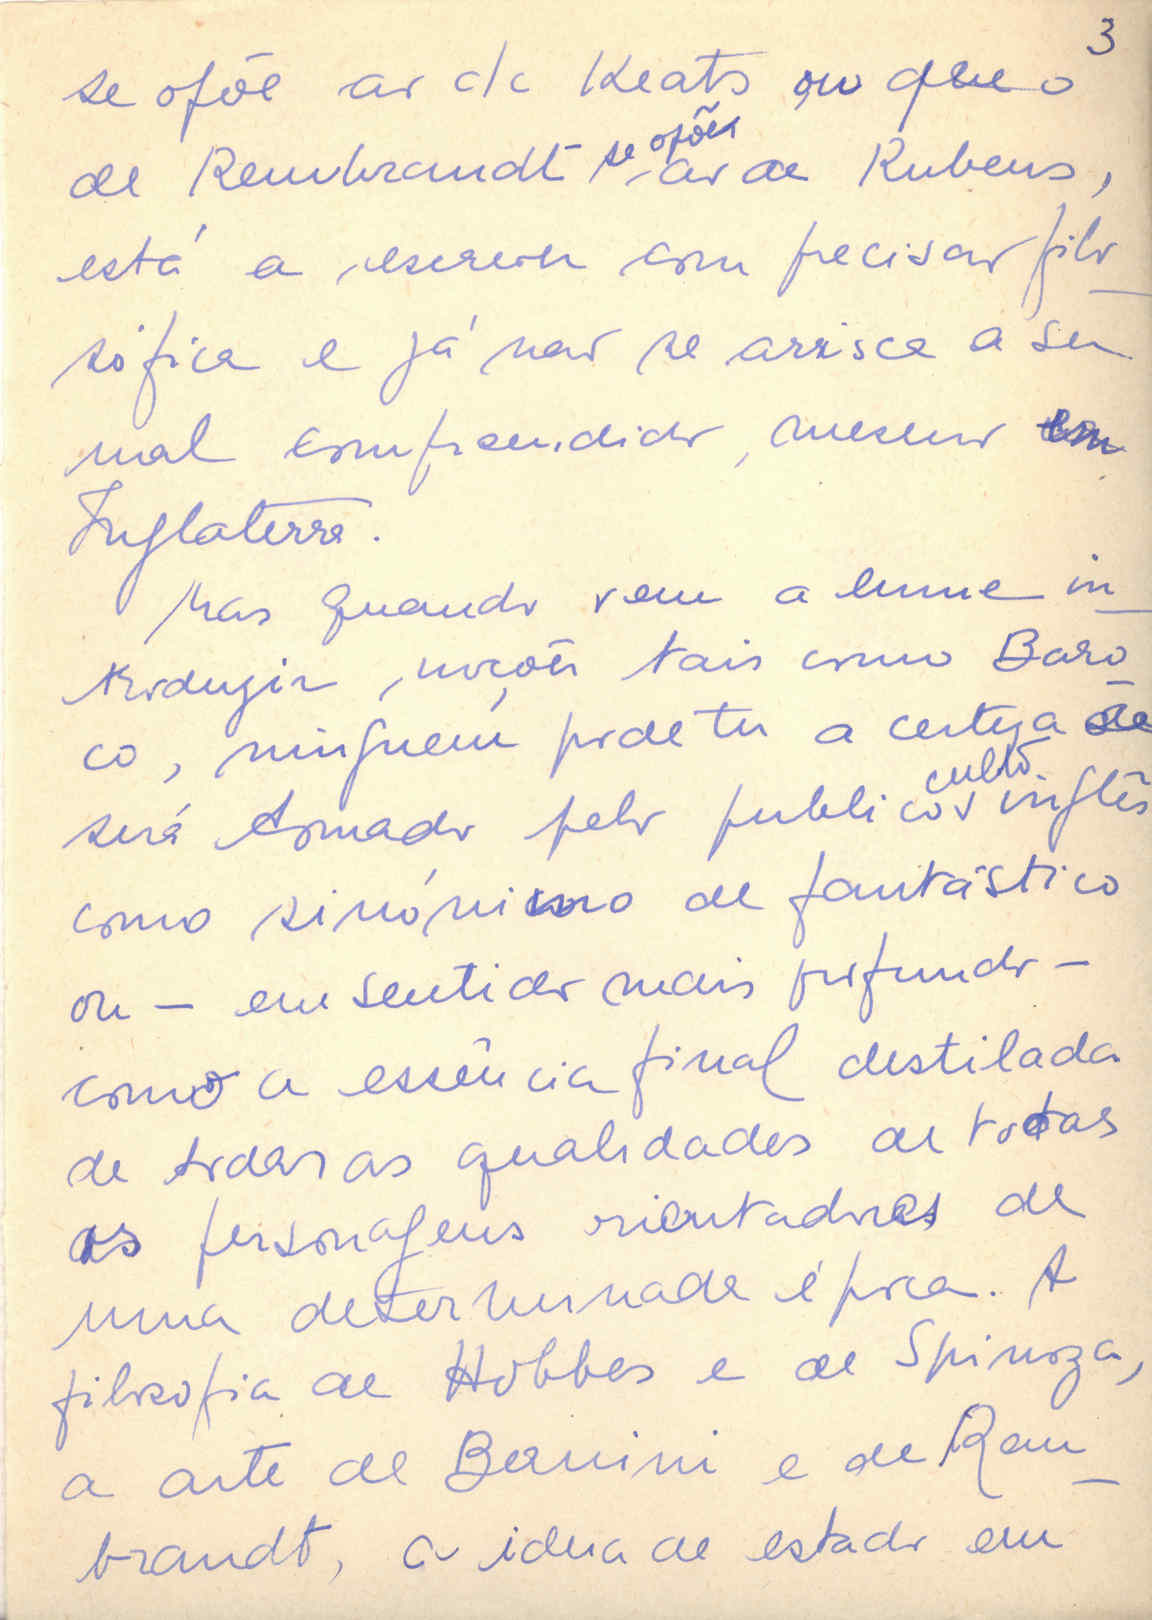 3
se opõe ao de Keats ou que o
de Rembrandt se opõe ao de Rubens,
está a escrever com precisão filo-
sófica e já não se arrisca a ser
mal compreendido, mesmo em
Inglaterra.
Mas quando vem a lume in-
troduzir noções tais como Baro-
co, ninguém pode ter a certeza se
será tomado pelo publico culto inglês
como sinónimo de fantástico
ou — em sentido mais profundo —
como a essência final destilada
de todas as qualidades de todas
os personagens orientadores de
uma determinada época. A
filosofia de Hobbes e de Spinoza,
a arte de Bernini e de Rem-
brandt, a ideia de estado em